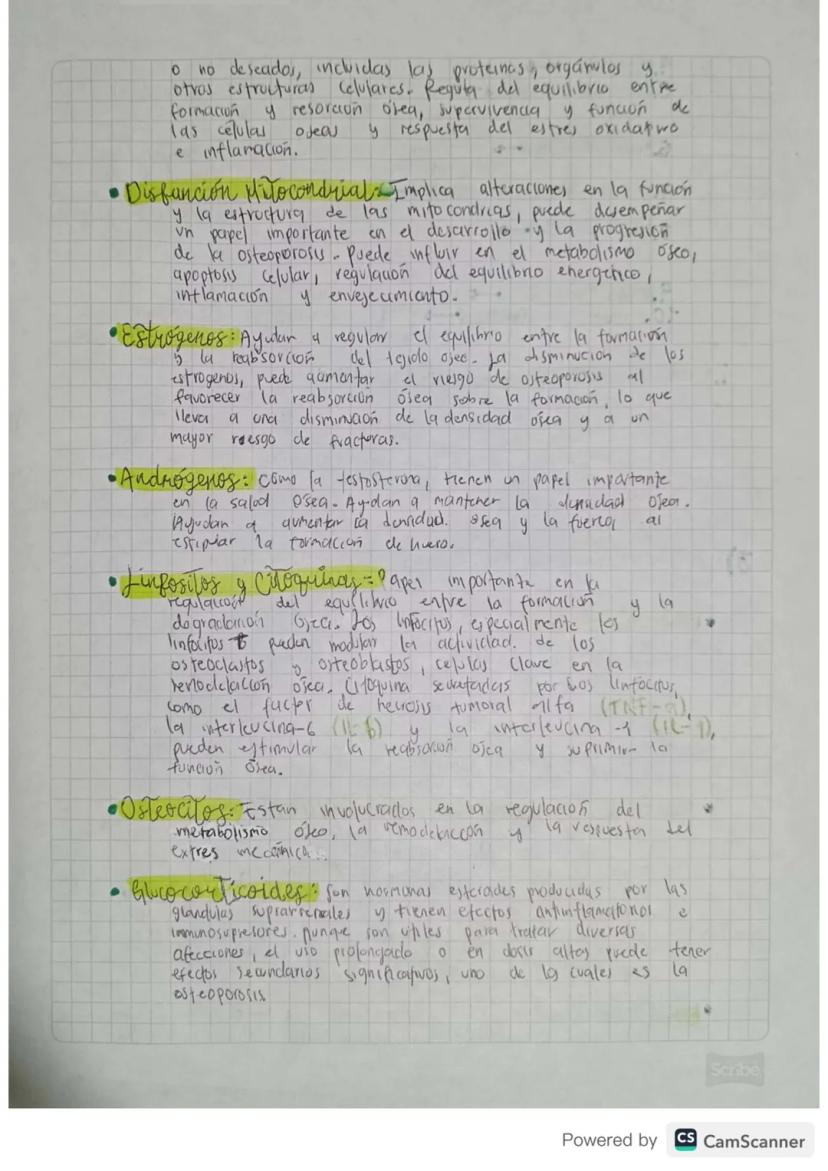 o no deseados, incluidas las proteinas, orgánulos y
otros estructuras celulares. Regula del equilibrio entre
formación y resorción ósea, supervivencia y función de
las células oseas y respuesta del estres oxidativo
e inflamación.
• Disfunción Mitocondrial: Implica alteraciones en la función
y la estructura de las mitocondrias, puede desempeñar
un papel importante en el desarrollo y la progresión
de la osteoporosis. Puede influir en el metabolismo óseo,
apoptosis celular, regulación del equilibrio energetico,
inflamación y envejecimiento.
• Estrógenos: Ayudan a regular el equilibrio entre la formación
y la reabsorción del tejido oseo. La disminucion de los
estrogenos, puede aumentar el riesgo de osteoporosis al
favorecer la reabsorción ósea sobre la formación, lo que
lleva a una disminución de la densidad ósea y a un
mayor riesgo de fracturas.
• Andrógenos: como la testosterona, tienen un papel importante
en la salud osea. Aydan a mantener la densidad osea.
Ayudan a aumentar la densidad. osea y la fuerza al
la formación de hueso.
• Linfositos y Citoquinas: Papel importante en la
regulación del equilibrio entre la formación y la
degradación ósea. Los linfocitos, especialmente los
linfocitos pueden modular la actividad. de los
osteoclastos y osteoblastos, celulas clave en la
remodelación ósea. Citoquina secretadas por los linfocitos,
como el factor de necrosis tumoral alfa (TNF-α),
la interleucina-6 (IL-6) y la interleucina -1 (IL-1),
pueden estimular la reabsorción osea y suprimir la
función ósea.
• Osteocitos: Estan involucrados en la regulación del
metabolismo óseo, la remodelación y la respuesta del
extres mecánica.
• Glucocorticoides: Son hormonas esteroides producidas por las
glandulas suprarrenales y tienen efectos antiinflamatorios e
inmunosupresores. Aunque son utiles para tratar diversas
afecciones, el uso prolongado o en dosis altas puede tener
efectos secundarios significativos, uno de los cuales es la
osteoporosis
Scribe
Powered by CS CamScanner